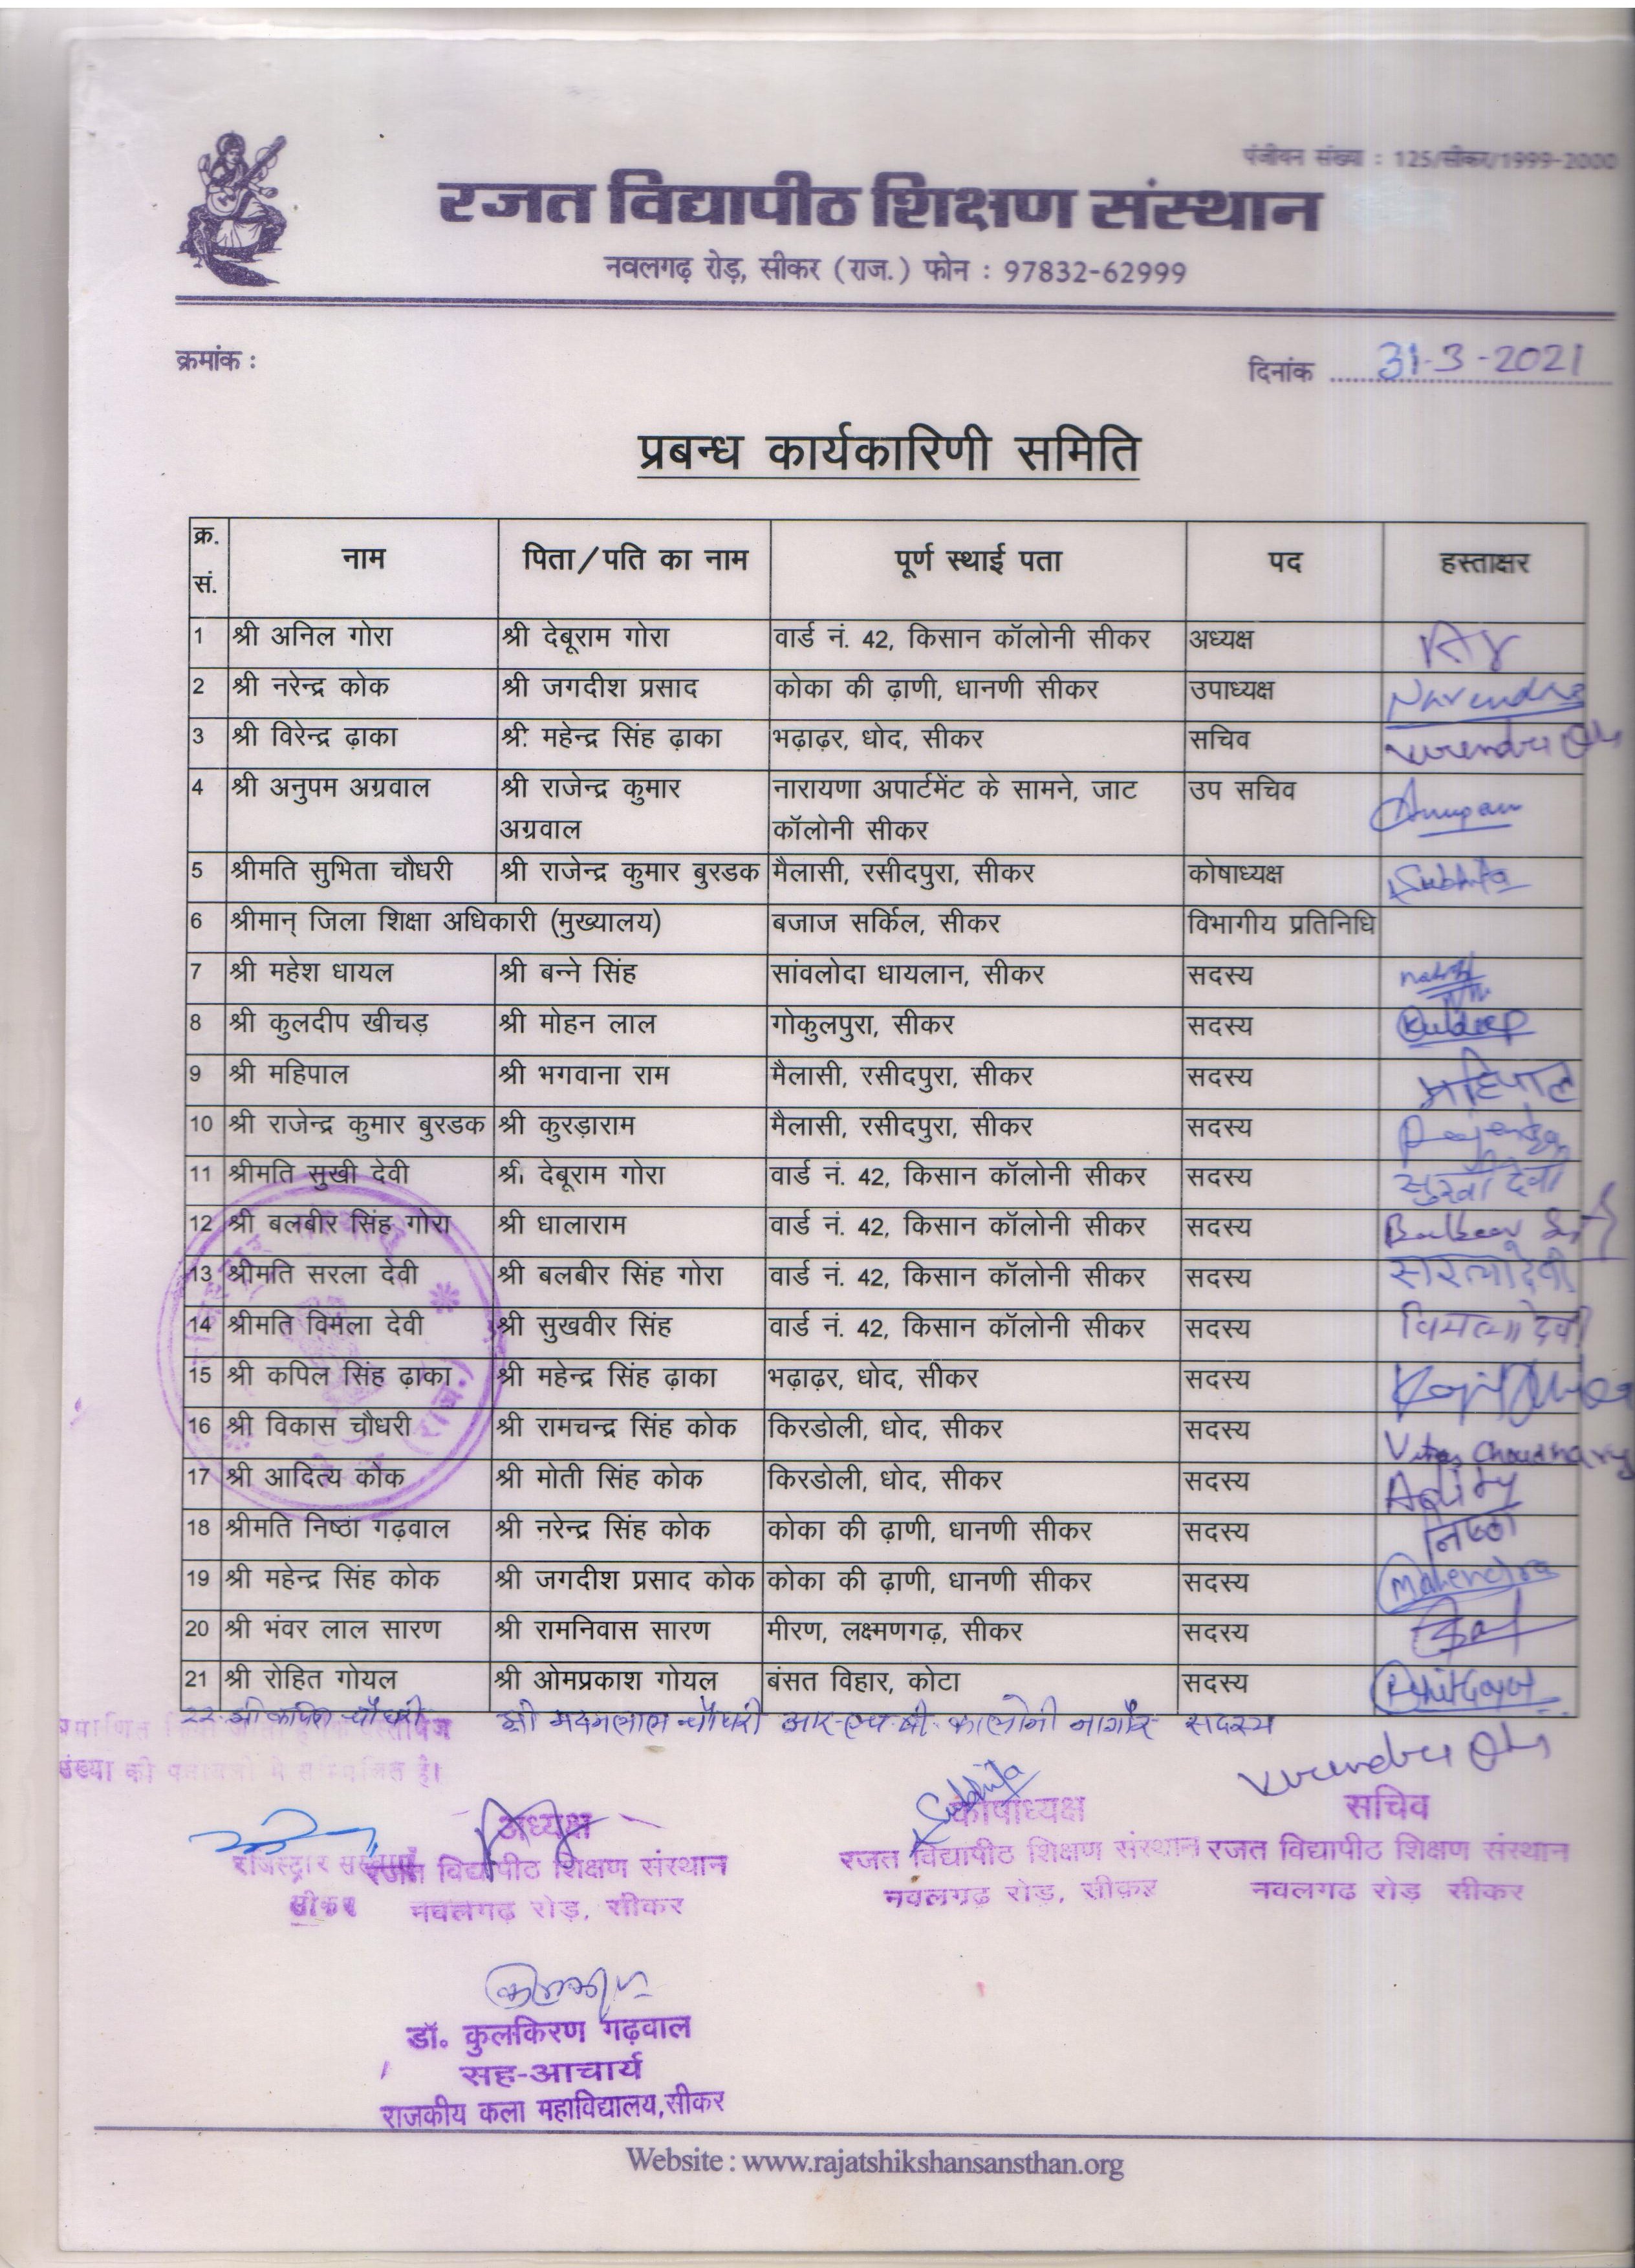 पंजीयन संख्या : 125/सीकर/1999-2000
रजत विद्यापीठ शिक्षण संस्थान
नवलगढ़ रोड़, सीकर (राज.) फोन : 97832-62999
क्रमांक :
दिनांक 31-3-2021
प्रबन्ध कार्यकारिणी समिति
क्र. सं. नाम पिता/पति का नाम पूर्ण स्थाई पता पद हस्ताक्षर
1 श्री अनिल गोरा श्री देबूराम गोरा वार्ड नं. 42, किसान कॉलोनी सीकर अध्यक्ष
2 श्री नरेन्द्र कोक श्री जगदीश प्रसाद कोका की ढ़ाणी, धानणी सीकर उपाध्यक्ष Narendra
3 श्री विरेन्द्र ढ़ाका श्री महेन्द्र सिंह ढ़ाका भढ़ाढ़र, धोद, सीकर सचिव
4 श्री अनुपम अग्रवाल श्री राजेन्द्र कुमार नारायणा अपार्टमेंट के सामने, जाट उप सचिव Anupam
अग्रवाल कॉलोनी सीकर
5 श्रीमति सुभिता चौधरी श्री राजेन्द्र कुमार बुरडक मैलासी, रसीदपुरा, सीकर कोषाध्यक्ष Subhita
6 श्रीमान् जिला शिक्षा अधिकारी (मुख्यालय) बजाज सर्किल, सीकर विभागीय प्रतिनिधि
7 श्री महेश धायल श्री बन्ने सिंह सांवलोदा धायलान, सीकर सदस्य
8 श्री कुलदीप खीचड़ श्री मोहन लाल गोकुलपुरा, सीकर सदस्य Kuldeep
9 श्री महिपाल श्री भगवाना राम मैलासी, रसीदपुरा, सीकर सदस्य महिपाल
10 श्री राजेन्द्र कुमार बुरडक श्री कुरड़ाराम मैलासी, रसीदपुरा, सीकर सदस्य
11 श्रीमति सुखी देवी श्री देबूराम गोरा वार्ड नं. 42, किसान कॉलोनी सीकर सदस्य सुखी देवी
12 श्री बलबीर सिंह गोरा श्री धालाराम वार्ड नं. 42, किसान कॉलोनी सीकर सदस्य
13 श्रीमति सरला देवी श्री बलबीर सिंह गोरा वार्ड नं. 42, किसान कॉलोनी सीकर सदस्य
14 श्रीमति विमला देवी श्री सुखवीर सिंह वार्ड नं. 42, किसान कॉलोनी सीकर सदस्य विमला देवी
15 श्री कपिल सिंह ढ़ाका श्री महेन्द्र सिंह ढ़ाका भढ़ाढ़र, धोद, सीकर सदस्य
16 श्री विकास चौधरी श्री रामचन्द्र सिंह कोक किरडोली, धोद, सीकर सदस्य Vikas Choudhary
17 श्री आदित्य कोक श्री मोती सिंह कोक किरडोली, धोद, सीकर सदस्य
18 श्रीमति निष्ठा गढ़वाल श्री नरेन्द्र सिंह कोक कोका की ढ़ाणी, धानणी सीकर सदस्य निष्ठा
19 श्री महेन्द्र सिंह कोक श्री जगदीश प्रसाद कोक कोका की ढ़ाणी, धानणी सीकर सदस्य Mahendra
20 श्री भंवर लाल सारण श्री रामनिवास सारण मीरण, लक्ष्मणगढ़, सीकर सदस्य
21 श्री रोहित गोयल श्री ओमप्रकाश गोयल बंसत विहार, कोटा सदस्य
22. श्री कपिल चौधरी श्री मदनलाल चौधरी आर-एच.बी. कालोनी नागौर सदस्य
प्रमाणित
संख्या की में सम्मिलित है।
Subhita
अध्यक्ष कोषाध्यक्ष सचिव
रजिस्ट्रार रजत विद्यापीठ शिक्षण संस्थान रजत विद्यापीठ शिक्षण संस्थान रजत विद्यापीठ शिक्षण संस्थान
सीकर नवलगढ़ रोड़, सीकर नवलगढ़ रोड़, सीकर नवलगढ रोड़ सीकर
डॉ. कुलकिरण गढ़वाल
सह-आचार्य
राजकीय कला महाविद्यालय,सीकर
Website : www.rajatshikshansansthan.org